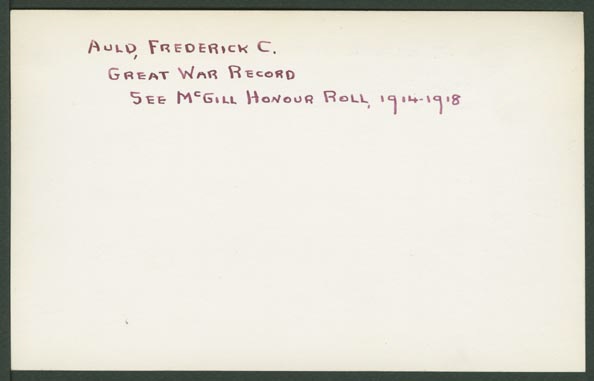 AULD, FREDERICK C.
GREAT WAR RECORD
SEE McGILL HONOUR ROLL, 1914-1918